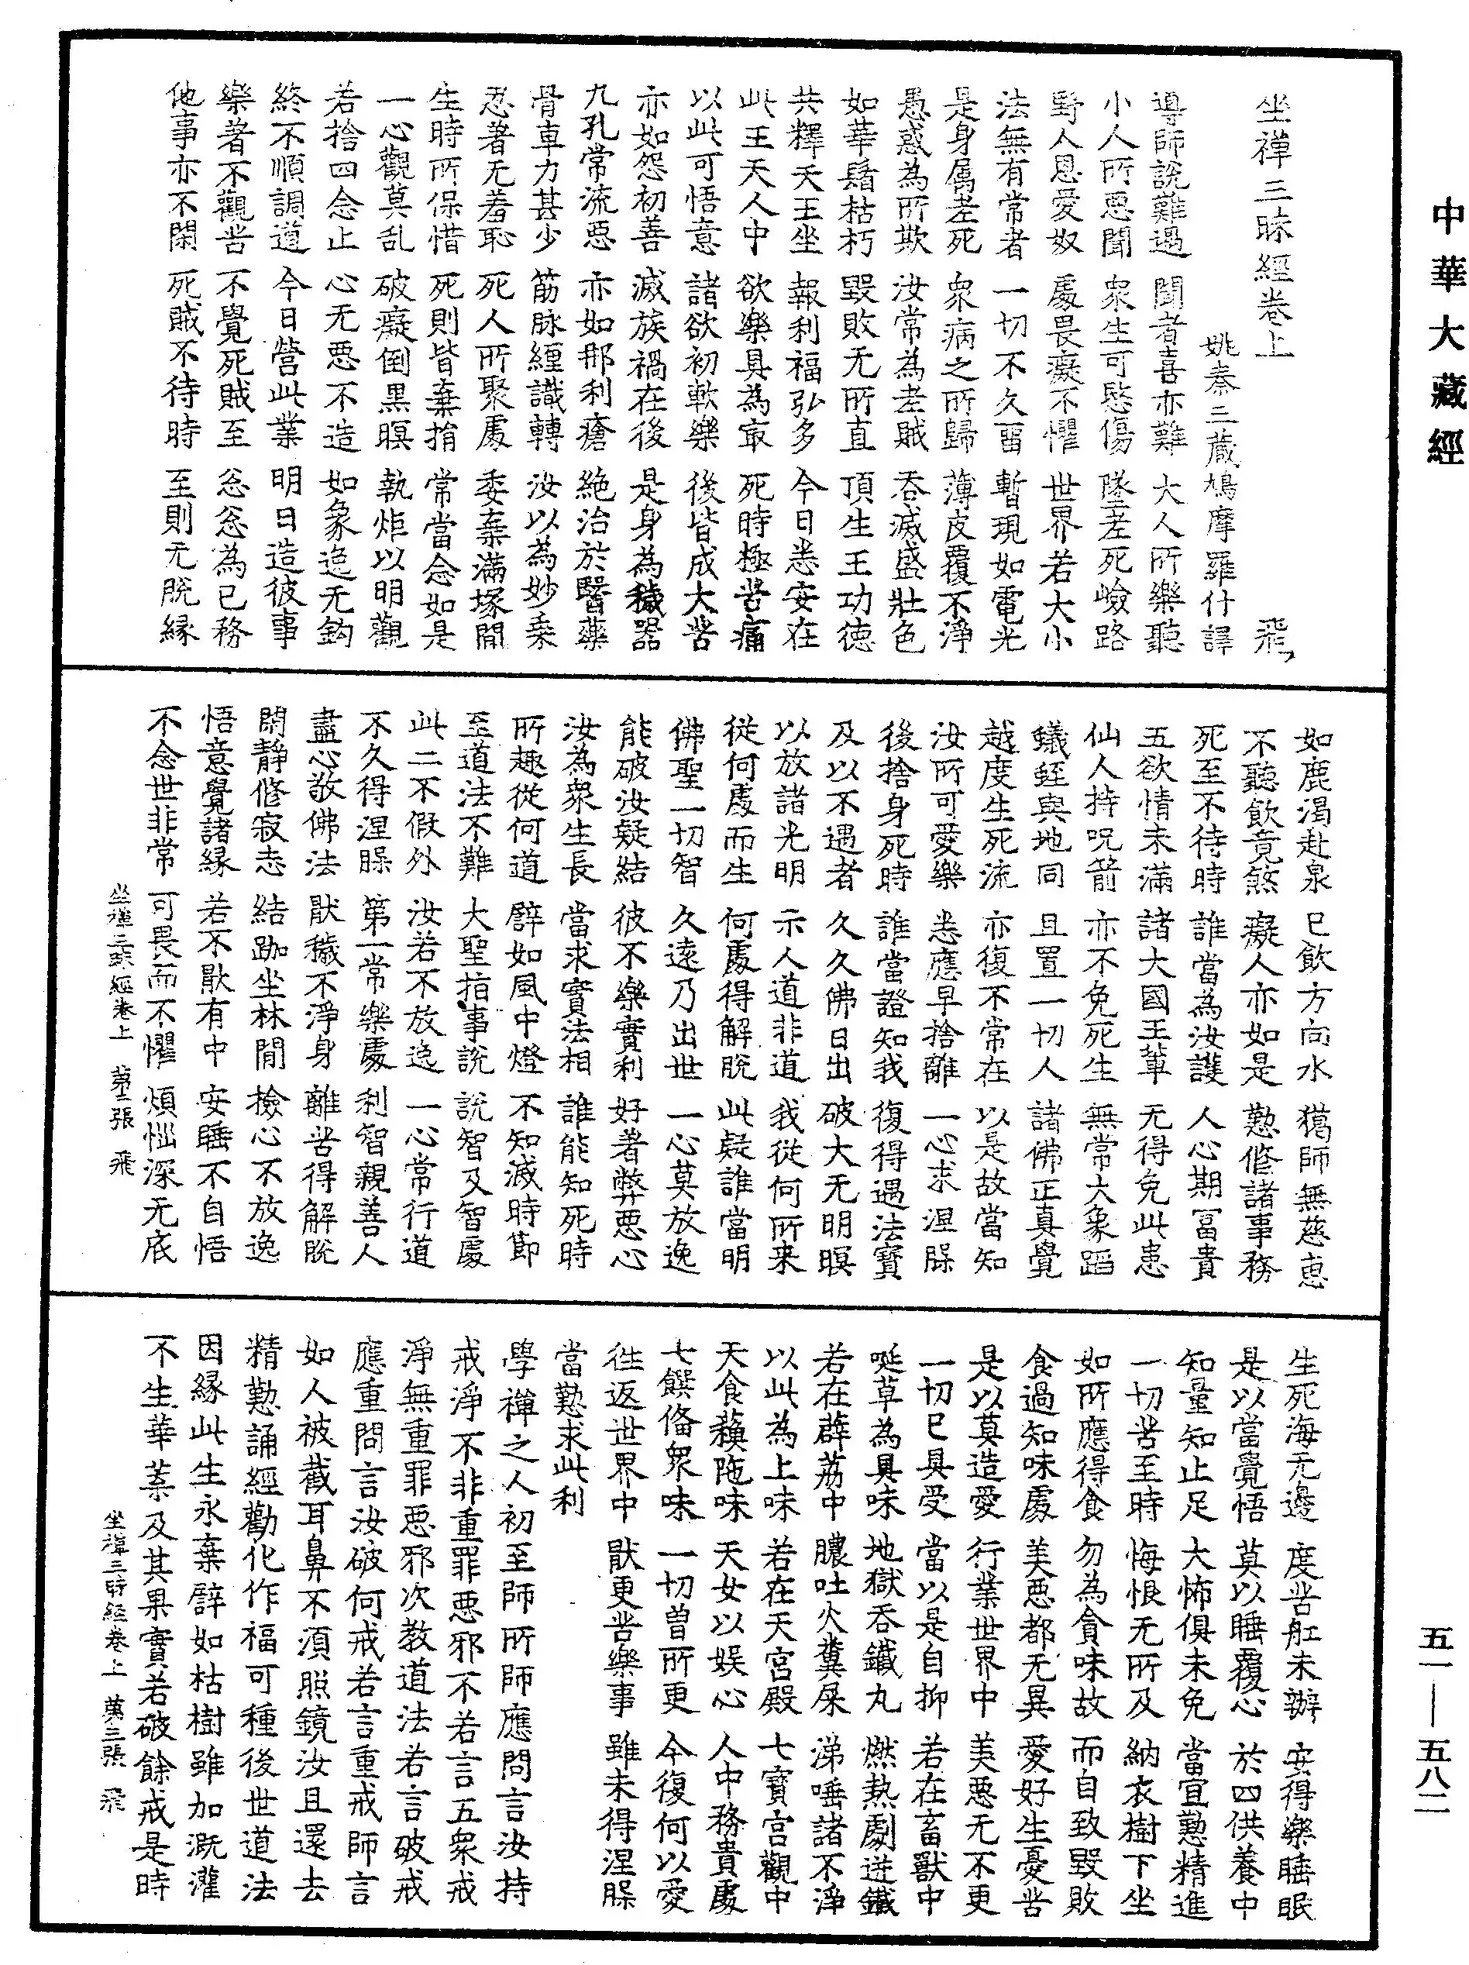 中華大藏經
坐禪三昧經卷上 飛
姚秦三藏鳩摩羅什譯
導師說難遇 聞者喜亦難 大人所樂聽
小人所惡聞 衆生可愍傷 墜老死嶮路
野人恩愛奴 處畏癡不懼 世界若大小
法無有常者 一切不久留 暫現如電光
是身屬老死 衆病之所歸 薄皮覆不淨
愚惑為所欺 汝常為老賊 吞滅盛壯色
如華鬘枯朽 毀敗无所直 頂生王功德
共釋天王坐 報利福弘多 今日悉安在
此王天人中 欲樂具為㝡 死時極苦痛
以此可悟意 諸欲初軟樂 後皆成大苦
亦如怨初善 滅族禍在後 是身為穢器
九孔常流惡 亦如那利瘡 絶治於醫藥
骨車力甚少 筋脉纏識轉 汝以為妙乘
忍著无羞恥 死人所聚處 委棄滿塚間
生時所保惜 死則皆棄捐 常當念如是
一心觀莫乱 破癡倒黑暝 執炬以明觀
若捨四念止 心无惡不造 如象逸无鈎
終不順調道 今日營此業 明日造彼事
樂著不觀苦 不覺死賊至 忩忩為已務
他事亦不閑 死賊不待時 至則无脫緣
如鹿渴赴泉 已飲方向水 獦師無慈惠
不聽飲竟煞 癡人亦如是 懃修諸事務
死至不待時 誰當為汝護 人心期冨貴
五欲情未滿 諸大國王輩 无得免此患
仙人持呪箭 亦不免死生 無常大象蹈
蟻蛭與地同 且置一切人 諸佛正真覺
越度生死流 亦復不常在 以是故當知
汝所可愛樂 悉應早捨離 一心求涅槃
後捨身死時 誰當證知我 復得遇法寶
及以不遇者 久久佛日出 破大无明暝
以放諸光明 示人道非道 我從何所来
從何處而生 何處得解脫 此疑誰當明
佛聖一切智 久遠乃出世 一心莫放逸
能破汝疑結 彼不樂實利 好著弊惡心
汝為衆生長 當求實法相 誰能知死時
所趣從何道 譬如風中燈 不知滅時節
至道法不難 大聖指事說 說智及智處
此二不假外 汝若不放逸 一心常行道
不久得涅槃 第一常樂處 利智親善人
盡心敬佛法 猒穢不淨身 離苦得解脫
閑靜修寂志 結跏坐林間 撿心不放逸
悟意覺諸緣 若不猒有中 安睡不自悟
不念世非常 可畏而不懼 煩惱深无底
坐禪三昧經卷上 第二張 飛
生死海无邊 度苦舡未辦 安得樂睡眠
是以當覺悟 莫以睡覆心 於四供養中
知量知止足 大怖俱未免 當宜懃精進
一切苦至時 悔恨无所及 納衣樹下坐
如所應得食 勿為貪味故 而自致毀敗
食過知味處 美惡都无異 愛好生憂苦
是以莫造愛 行業世界中 美惡无不更
一切已具受 當以是自抑 若在畜獸中
唌草為具味 地獄吞鐵丸 燃熱劇迸鐵
若在薜荔中 膿吐火糞屎 涕唾諸不淨
以此為上味 若在天宮殿 七寶宮觀中
天食蘇陁味 天女以娛心 人中務貴處
七饌俻衆味 一切曾所更 今復何以愛
往返世界中 猒更苦樂事 雖未得涅槃
當懃求此利
學禪之人初至師所師應問言汝持
戒淨不非重罪惡邪不若言五衆戒
淨無重罪惡邪次教道法若言破戒
應重問言汝破何戒若言重戒師言
如人被截耳鼻不湏照鏡汝且還去
精懃誦經勸化作福可種後世道法
因緣此生永棄譬如枯樹雖加溉灌
不生華葉及其果實若破餘戒是時
坐禪三昧經卷上 第三張 飛
五一——五八二